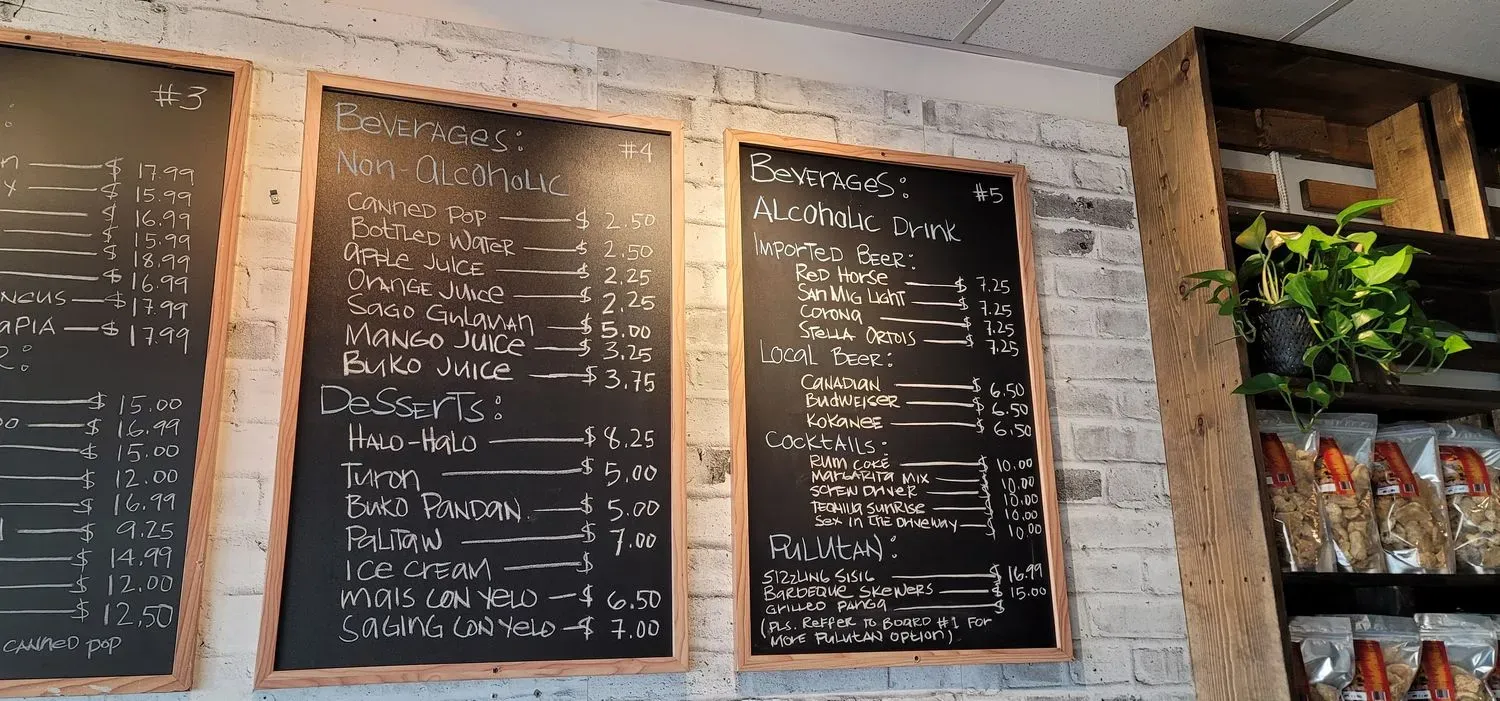 #3
$ 17.99
$ 15.99
$ 16.99
$ 15.99
$ 18.99
$ 16.99
$ 17.99
$ 17.99
$ 15.00
$ 16.99
$ 15.00
$ 12.00
$ 16.99
$ 9.25
$ 14.99
$ 12.00
$ 12.50
CANNED POP
BEVERAGES: #4
NON-ALCOHOLIC
CANNED POP $ 2.50
BOTTLED WATER $ 2.50
APPLE JUICE $ 2.25
ORANGE JUICE $ 2.25
SAGO GULAMAN $ 5.00
MANGO JUICE $ 3.25
BUKO JUICE $ 3.75
DESSERTS:
HALO-HALO $ 8.25
TURON $ 5.00
BUKO PANDAN $ 5.00
PALITAW $ 7.00
ICE CREAM $
MAIS CON YELO $ 6.50
SAGING CON YELO $ 7.00
BEVERAGES: #5
ALCOHOLIC DRINK
IMPORTED BEER:
RED HORSE $ 7.25
SAN MIG LIGHT $ 7.25
CORONA $ 7.25
STELLA ORTOIS $ 7.25
LOCAL BEER:
CANADIAN $ 6.50
BUDWEISER $ 6.50
KOKANEE $ 6.50
COCKTAILS:
RUM COKE $ 10.00
MARGARITA MIX $ 10.00
SCREW DRIVER $ 10.00
TEQUILA SUNRISE $ 10.00
SEX IN THE DRIVEWAY $ 10.00
PULUTAN:
SIZZLING SISIG $ 16.99
BARBEQUE SKEWERS $ 15.00
GRILLED PANGA $
(PLS. REFFER TO BOARD #1 FOR
MORE PULUTAN OPTION)